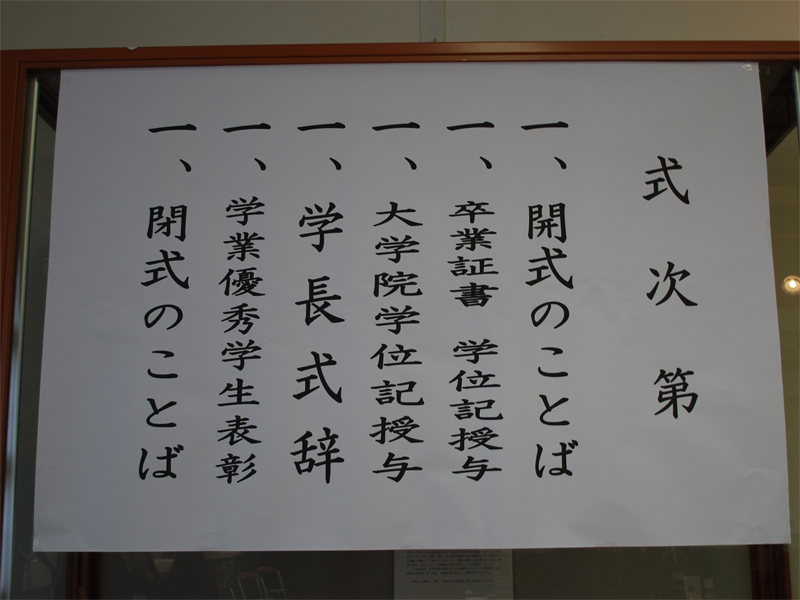 式次第
一、開式のことば
一、卒業証書　学位記授与
一、大学院学位記授与
一、学長式辞
一、学業優秀学生表彰
一、閉式のことば